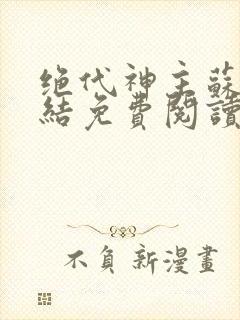 绝代神主蘇
結免費閱讀
不負新漫畫